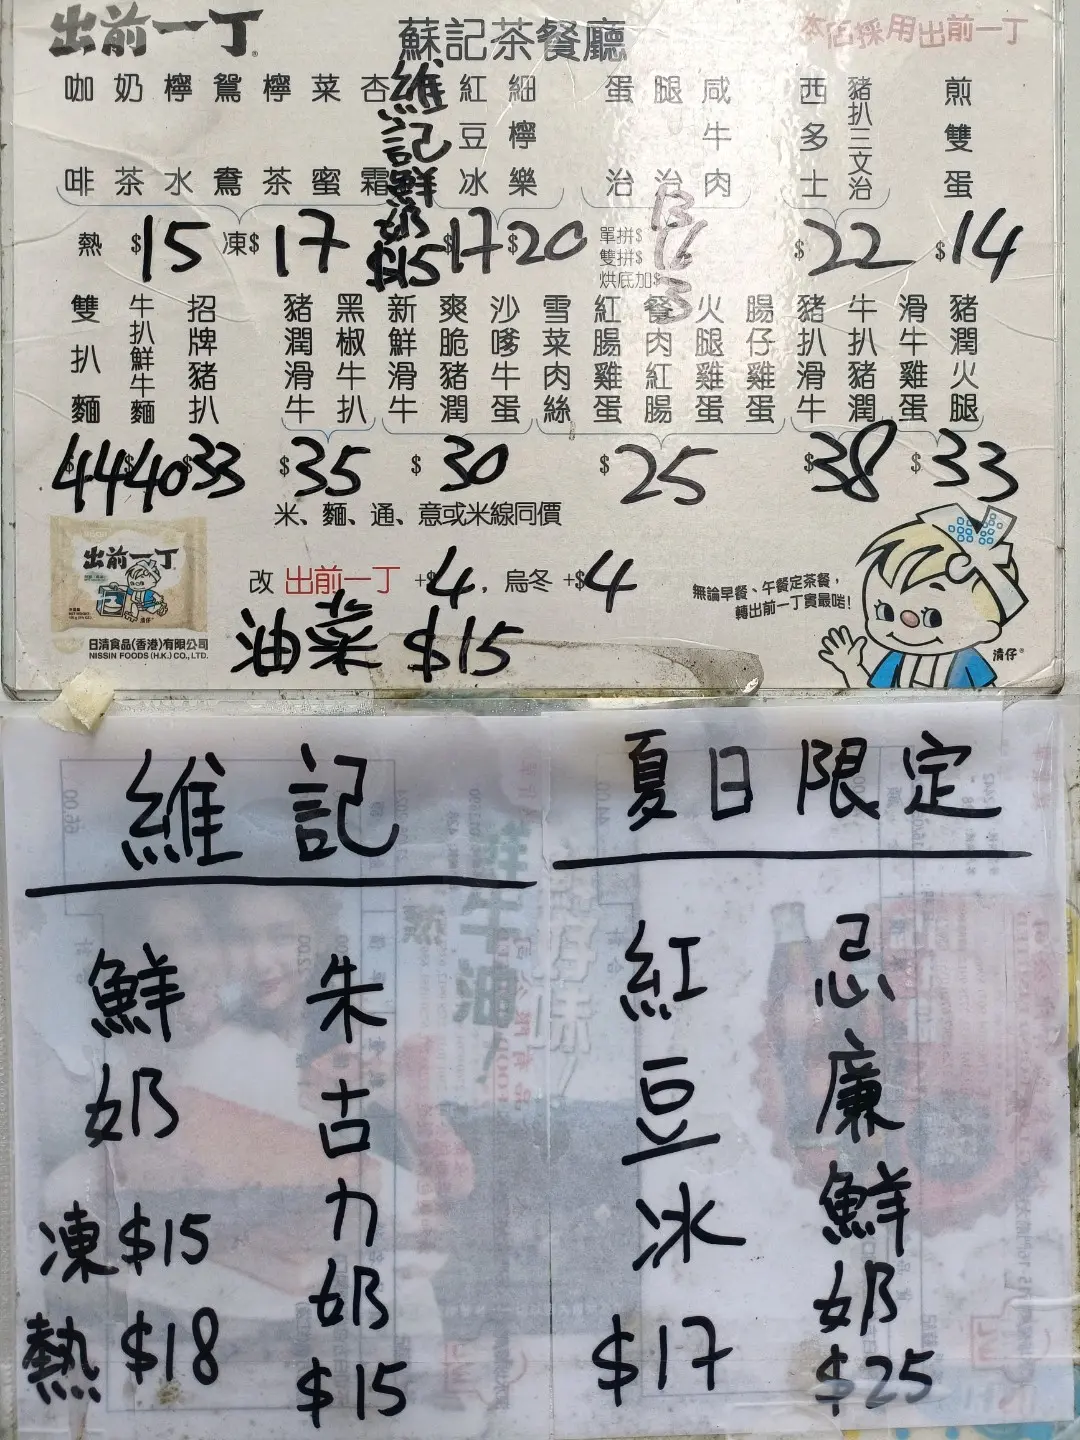 出前一丁
蘇記茶餐廳
本店採用出前一丁
咖啡
奶茶
檸水
鴛鴦
檸茶
菜蜜
杏霜
維記鮮奶
$15
紅豆冰
細檸樂
蛋治
腿治
咸牛肉
西多士
豬扒三文治
煎雙蛋
熱 $15 凍$ 17 $17 $20
單拼$ 13
雙拼$
烘底加$ 3
$22
$14
雙扒麵
牛扒鮮牛麵
招牌豬扒
豬潤滑牛
黑椒牛扒
新鮮滑牛
爽脆豬潤
沙嗲牛蛋
雪菜肉絲
紅腸雞蛋
餐肉紅腸
火腿雞蛋
腸仔雞蛋
豬扒滑牛
牛扒豬潤
滑牛雞蛋
豬潤火腿
$44 $40 $33 $35 $30 $25 $38 $33
米、麵、通、意或米線同價
改 出前一丁 +$4, 烏冬 +$4
油菜 $15
無論早餐、午餐定茶餐,
轉出前一丁實最啱!
清仔®
出前一丁
日清食品(香港)有限公司
NISSIN FOODS (H.K.) CO., LTD.
維記
鮮奶
凍 $15
熱 $18
朱古力奶
$15
夏日限定
紅豆冰
$17
忌廉鮮奶
$25